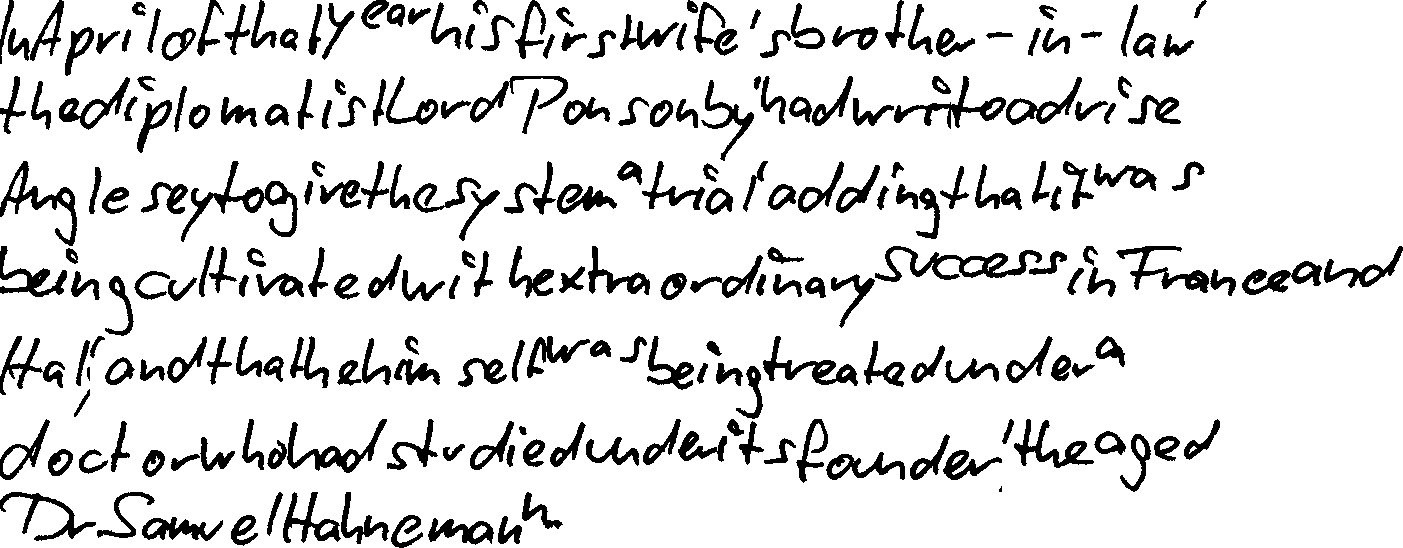 In April of that year his first wife's brother-in-law,
the diplomatist Lord Ponsonby, had writ to advise
Anglesey to give the system a trial, adding that it was
being cultivated with extraordinary success in France and
Italy, and that he himself was being treated under a
doctor who had studied under its founder, the aged
Dr Samuel Hahnemann.